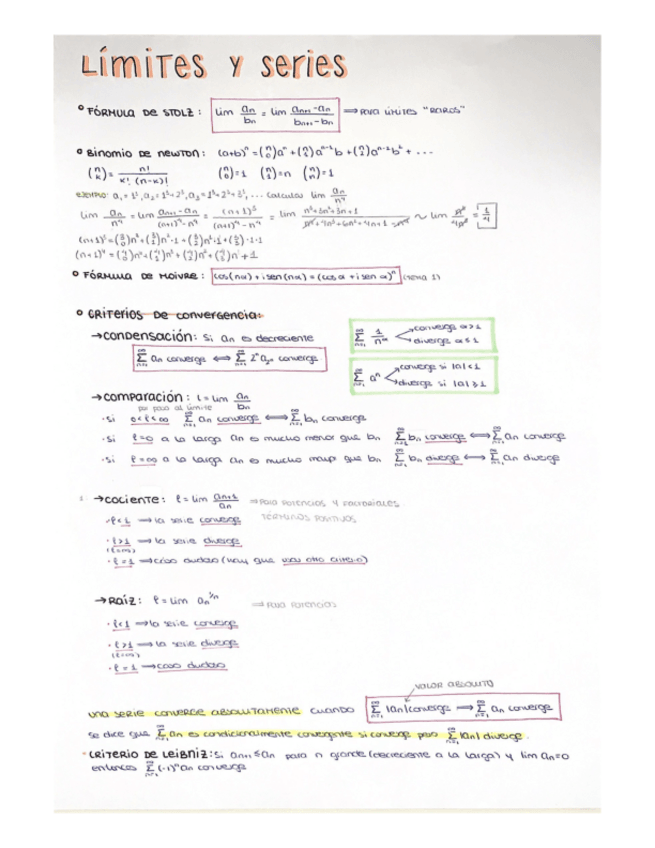 Límites y series
° FÓRMULA DE STOLZ: lim an/bn = lim (an+1 - an)/(bn+1 - bn) ⟹ para límites "RAROS"
° Binomio de Newton: (a+b)^n = (n 0)a^n + (n 1)a^n-1 b + (n 2)a^n-2 b² + ...
(n k) = n!/(k! (n-k)!) (n 0)=1 (n 1)=n (n n)=1
ejemplo: a₁ = 1³, a₂ = 1³+2³, a₃ = 1³+2³+3³, ... calcular lim an/n⁴
lim an/n⁴ = lim (an+1 - an)/((n+1)⁴ - n⁴) = (n+1)³/((n+1)⁴ - n⁴) = lim (n³+3n²+3n+1)/(n⁴+4n³+6n²+4n+1-n⁴) ~ lim n³/4n³ = 1/4
(n+1)³ = (3 0)n³ + (3 1)n²·1 + (3 2)n·1 + (3 3)·1·1
(n+1)⁴ = (4 0)n⁴ + (4 1)n³ + (4 2)n² + (4 3)n + 1
° FÓRMULA DE MOIVRE: cos(nα) + i sen(nα) = (cos α + i sen α)^n (tema 1)
° CRITERIOS DE CONVERGENCIA:
→ CONDENSACIÓN: Si an es decreciente
∑ n=1 ∞ an converge ⟺ ∑ n=1 ∞ 2^n a2^n converge
∑ n=1 ∞ 1/n^α converge α>1
diverge α≤1
∑ n=1 ∞ a^n converge si |a|<1
diverge si |a|≥1
→ COMPARACIÓN: l = lim an/bn
por paso al límite
· Si 0<l<∞ ∑ n=1 ∞ an converge ⟺ ∑ n=1 ∞ bn converge
· Si l=0 a la larga an es mucho menor que bn ∑ n=1 ∞ bn converge ⟺ ∑ n=1 ∞ an converge
· Si l=∞ a la larga an es mucho mayor que bn ∑ n=1 ∞ bn diverge ⟺ ∑ n=1 ∞ an diverge
→ COCIENTE: l = lim an+1/an ⟹ para potencias y factoriales
TÉRMINOS POSITIVOS
· l<1 ⟹ la serie converge
· l>1 ⟹ la serie diverge
(l=∞)
· l=1 ⟹ caso dudoso (hay que usar otro criterio)
→ RAÍZ: l = lim an^1/n ⟹ para potencias
· l<1 ⟹ la serie converge
· l>1 ⟹ la serie diverge
(l=∞)
· l=1 ⟹ caso dudoso
VALOR ABSOLUTO
una serie converge ABSOLUTAMENTE cuando ∑ n=1 ∞ |an| converge ⟹ ∑ n=1 ∞ an converge
se dice que ∑ n=1 ∞ an es condicionalmente convergente si converge pero ∑ n=1 ∞ |an| diverge.
· CRITERIO DE LEIBNIZ: Si an+1 ≤ an para n grande (decreciente a la larga) y lim an=0
entonces ∑ n=1 ∞ (-1)^n an converge